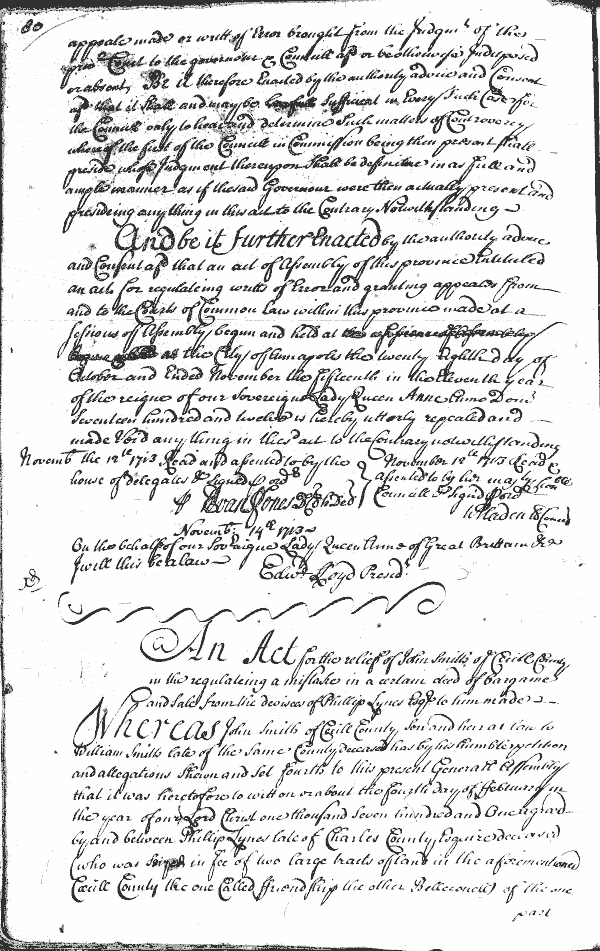 80
appeale made or writt of Error brought from the Judgmt. of the
provll. Court to the governour & Councill afd. or be otherwise Indisposed
or absent, Be it therefore Enacted by the authority advice and Consent
afd. that it shall and may be Sufficient in Every Such Case for
the Councill only to hear and determine Such matters of Controversy
where of the first of the Councill in Commission being then present shall
preside whose Judgment thereupon Shall be definitive in as full and
ample manner as if the said Governour were then actually present and
presideing any thing in this act to the Contrary Notwithstanding
And be it further Enacted by the authority advice
and Consent afd. that an act of Assembly of this province Entituled
an act for regulateing writts of Error and granting appeales from
and to the Courts of Common Law within this province made at a
Sessions of Assembly begun and held at
at the City of Annapolis the twenty Eighth day of
October and Ended November the fifteenth in the Eleventh year
of the reigne of our Sovereigne Lady Queen Anne Anno Domi
Seventeen hundred and twelve is hereby utterly repealed and
made Void any thing in this act to the Contrary notwithstanding
Novembr. the 12th. 1713 Read and assented to by the
house of delegates & Signed P ordr.
P Evan Jones
November 12th. 1713 Read &
assented to by her majtys. honoble.
Councill & Signd P ord
W Bladen Cl Concil
Novembr. 14th. 1713
On the behalf of our Soveraigne Lady Queen Anne of Great Brittain &c
I will this be a law
Edwd. Lloyd Presedt.
An Act for the relief of John Smith of Cecill County
in the regulateing a mistake in a certain deed of bargaine
and Sale from the devisees of Phillip Lynes Esqr. to him made
Whereas John Smith of Cecill County Son and heir at law to
William Smith late of the Same County deceased has by his humble petition
and allegations Shown and Set fourth to this present Generall Assembly
that it was heretofore to witt on or about the fourth day of February in
the year of our Lord Christ one thousand Seven hundred and One agreed
by and between Phillip Lynes late of Charles County Esquire deceased
(who was in fee of two large tracts of land in the aforementioned
Cecill County the one Called ffriendship the other Belleconnell) of the one
part